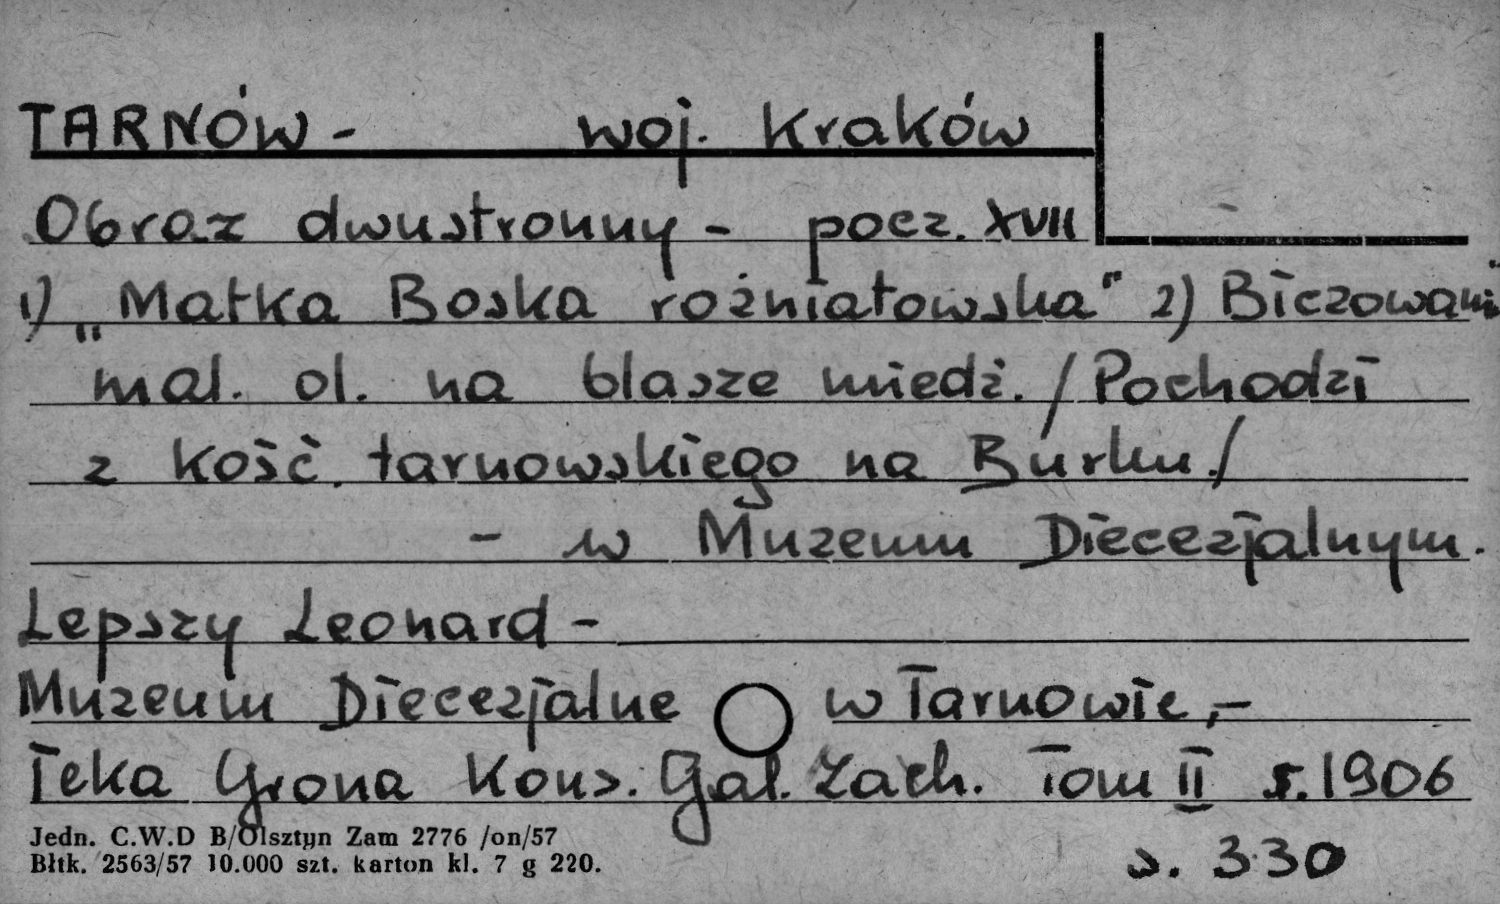 TARNÓW - woj. Kraków
Obraz dwustronny - pocz. XVII
1) „Matka Boska rożniatowska" 2) Biczowanie"
mal. ol. na blasze miedź. /Pochodzi
z kość. tarnowskiego na Burku./
- w Muzeum Diecezjalnym.
Lepszy Leonard -
Muzeum Diecezjalne w Tarnowie,-
Teka Grona Kons. Gal. Zach. Tom II r. 1906
s. 330
Jedn. C.W.D B/Olsztyn Zam 2776 /on/57
Błtk. 2563/57 10.000 szt. karton kl. 7 g 220.